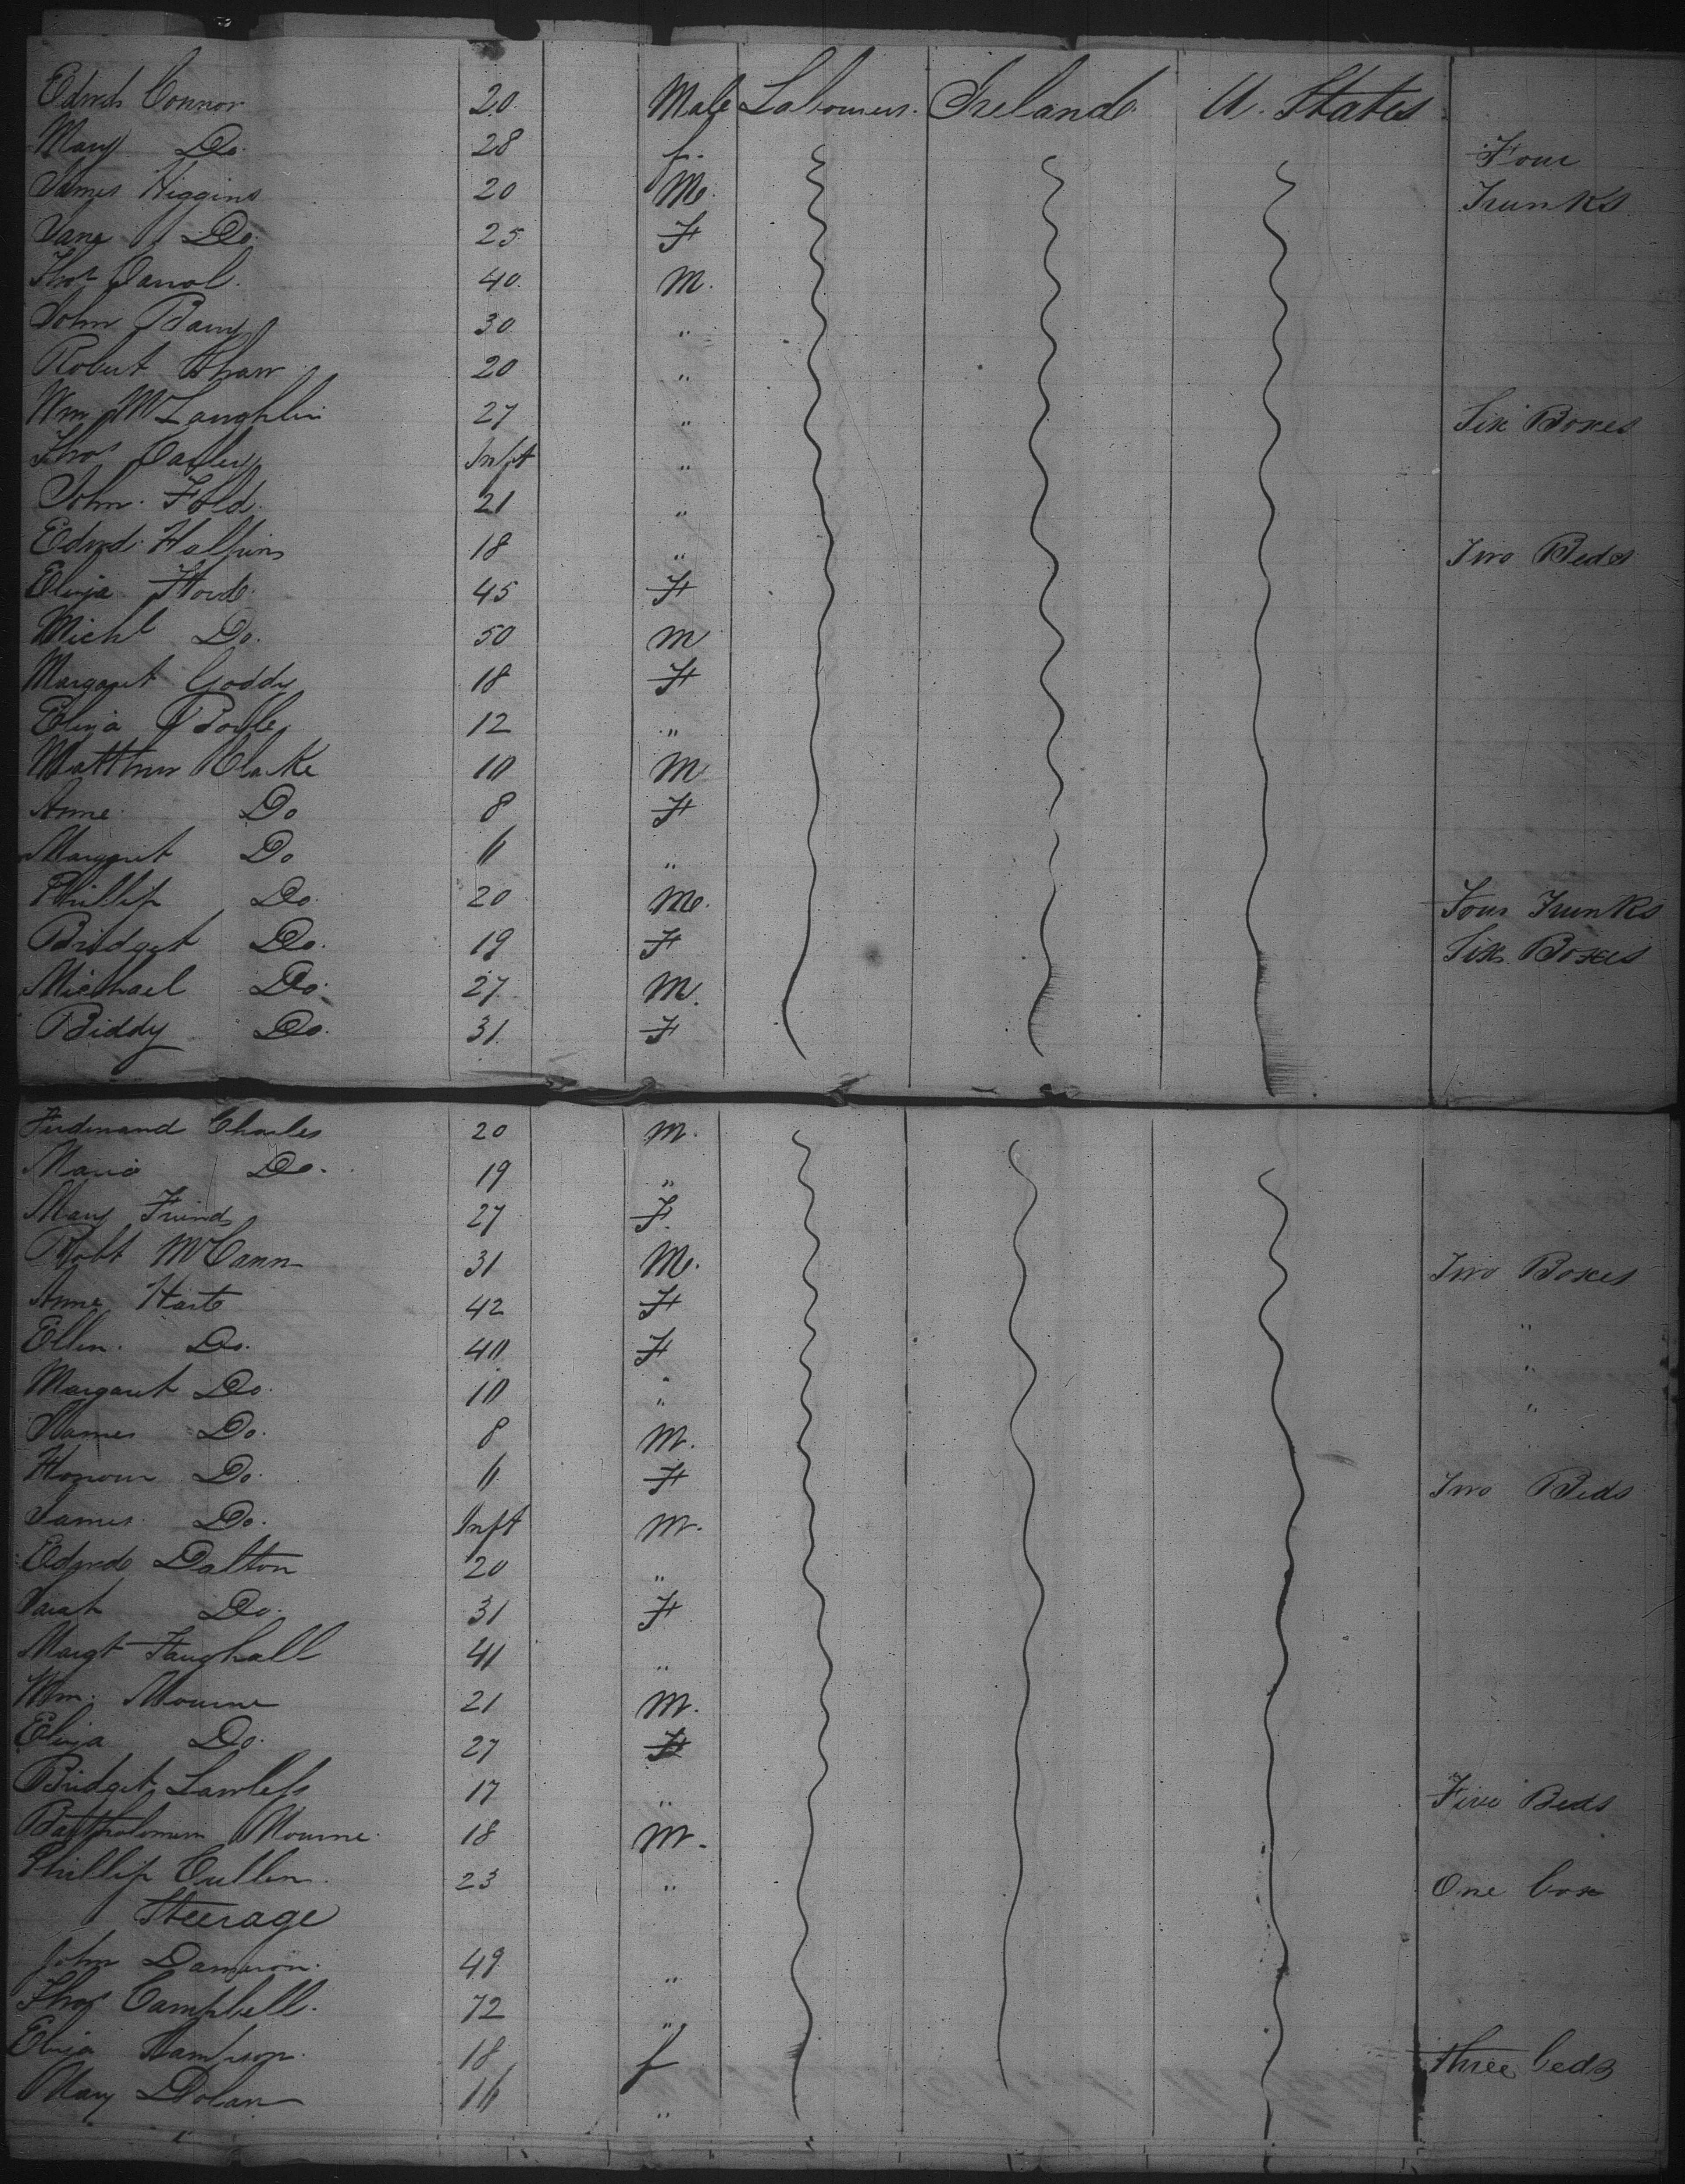 Edwd Connor 20 Male Labourer. Ireland U. States
Mary Do. 28 f. Four
James Higgins 20 M. Trunks
Jane Do. 25 F
Thos Carrol. 40 M.
John Barry 30 "
Robert Shaw 20 "
Wm McLaughlin 27 " Six Boxes
Thos Infft "
John. 21 "
Edwd. Halfpin 18 " Two Beds
Eliza 45 F
Michl Do. 50 M
Margaret Goddy 18 F
Eliza Boyle 12 "
Matthew Clarke 10 M
Anne Do 8 F
Margaret Do 6 "
Phillip Do. 20 M.
Four Trunks
Bridget Do. 19 F Six Boxes
Michael Do. 27 M.
Biddy Do. 31 F
Ferdinand Charles 20 M.
Maria Do. 19 "
Mary Friend 27 F.
Robt McCann 31 M. Two Boxes
Anne Harte 42 F "
Ellen. Do. 40 F "
Margaret Do. 10 " "
James Do. 8 M.
Honour Do. 6 F Two Beds
James. Do. Inft M.
Edwd Dalton 20 "
Sarah Do. 31 F
Margt Faughall 41 "
Wm. Mourne 21 M.
Eliza Do. 27 F
Bridget Lawless 17 " Five Beds
Bartholomew Mourne. 18 M.
Phillip Cullen. 23 " One box
Steerage
John Dameron. 49 "
Thos Campbell. 72 "
Eliza Sampson. 18 f three beds
Mary Dolan 16 "